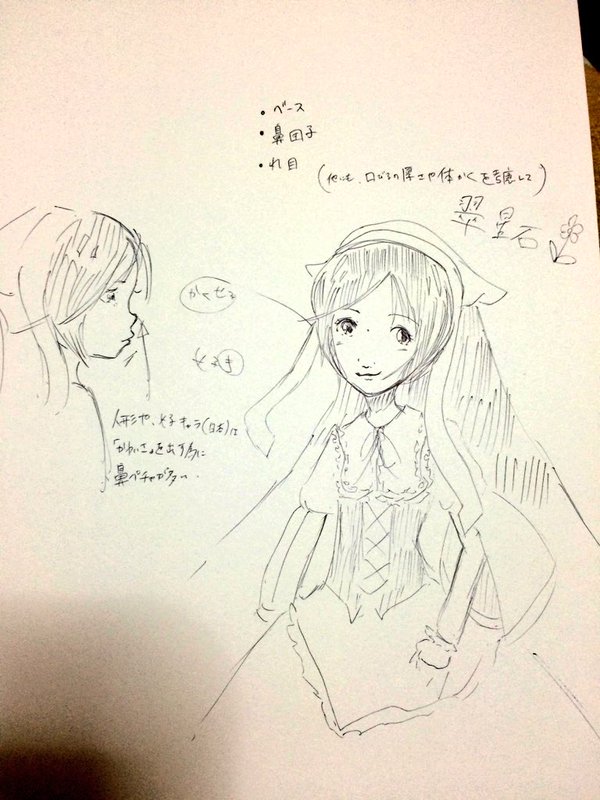 ・ベース
・鼻団子
・れ目
(他にも、口びるの厚さや体かくを考慮して)
翠星石
かくせる
人形や、女子キャラ(日本)は
「かわいさ」を出す為に
鼻ペチャが多い.